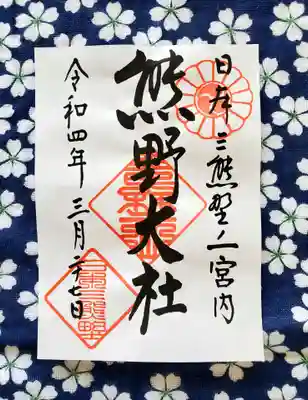 日本三熊埜ノ一宮内
熊野大社
令和四年三月二十七日